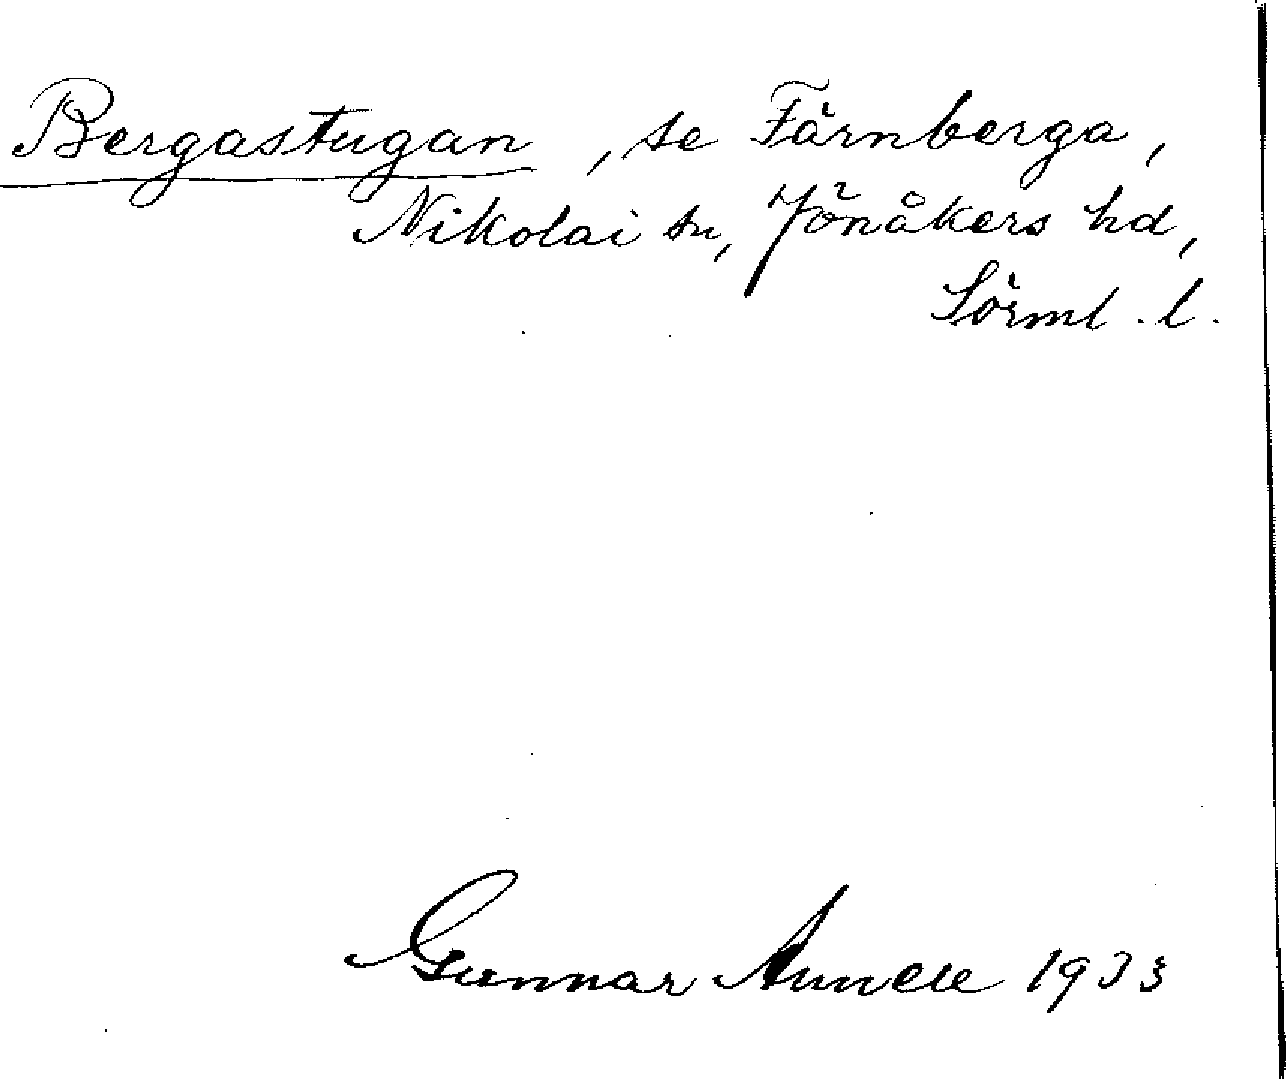 Bergastugan, se Färnberga,
Nikolai sn, Jönåkers hd,
Sörml. l.
Gunnar 1933